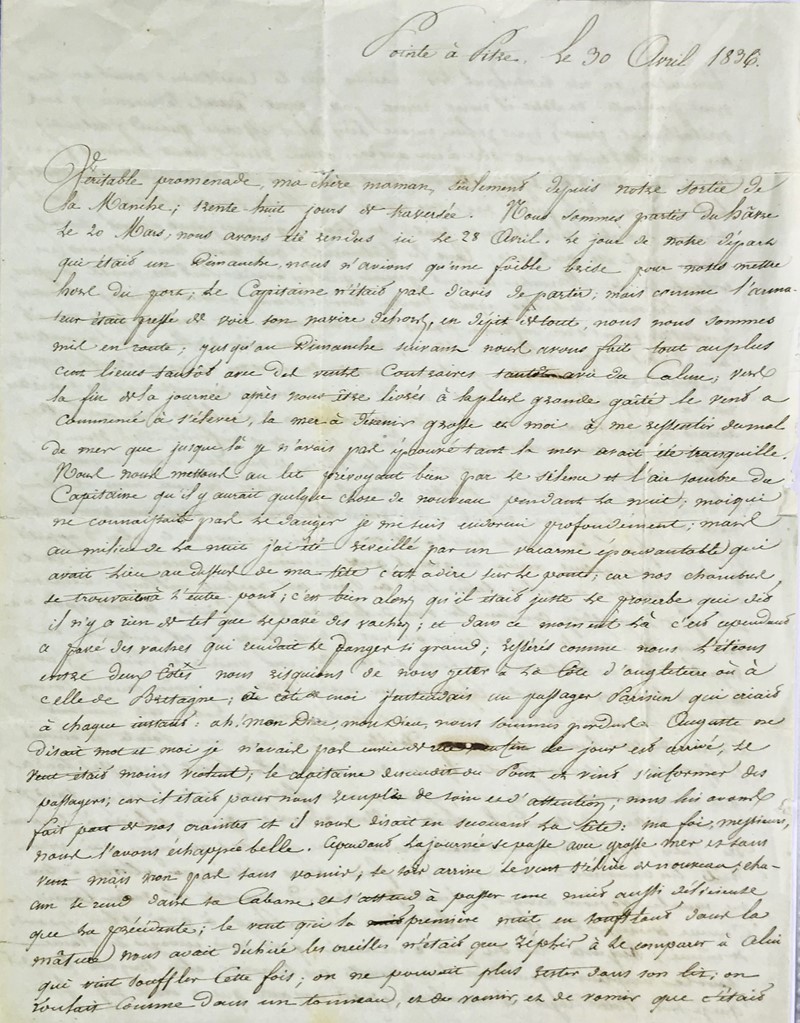 Pointe à Pitre. Le 30 Avril 1836.
Véritable promenade, ma chère maman, seulement depuis notre sortie de
la Manche; trente huit jours de traversée. Nous sommes partis du hâvre
Le 20 Mars, nous avons été rendus ici Le 28 Avril. Le jour de notre départ
qui était un Dimanche, nous n'avions qu'une foible brise pour nous mettre
hors du port; Le Capitaine n'était pas d'avis de partir; mais comme l'arma-
teur était pressé de voir son navire dehors, en dépit de tout, nous nous sommes
mis en route; jusqu'au Dimanche suivant nous avons fait tout au plus
cent lieues tantôt avec des vents Contraires tantôt avec du Calme; vers
la fin de la journée après nous être livrés à la plus grande gaîté le vent a
commencé à s'élever, la mer à devenir grosse et moi à me ressentir du mal
de mer que jusque là je n'avais pas éprouvé tant la mer avait été tranquille.
Nous nous mettons au lit prévoyant bien par le silence et l'air sombre du
Capitaine qu'il y aurait quelque chose de nouveau pendant la nuit; moi qui
ne connaissais pas le danger je me suis endormi profondément; mais
au milieu de la nuit j'ai été réveillé par un vacarme épouvantable qui
avait lieu au dessus de ma tête c'est à dire sur le pont; car nos chambres
se trouvaient à l'entre-pont; c'est bien alors qu'il était juste le proverbe qui dit
il n'y a rien de tel que le pavé des vaches; et dans ce moment là c'est cependant
ce pavé des vaches qui rendait le danger si grand; resserrés comme nous l'étions
entre deux côtes nous risquions de nous jetter à la Côte d'angleterre ou à
celle de Bretagne; à côté de moi j'entendais un passager Parisien qui criait
à chaque instant: ah! mon Dieu, mon Dieu, nous sommes perdus. Auguste ne
disait mot et moi je n'avais pas envie de le jour est arrivé, le
vent était moins violent; le capitaine descendit du Pont et vint s'informer des
passagers; car il était pour nous rempli de soin et d'attention; nous lui avons
fait part de nos craintes et il nous disait en secouant la tête: ma foi, messieurs,
nous l'avons échappé belle. Cependant la journée se passe avec grosse mer et sans
vent mais non pas sans vomir; le soir arrive le vent s'élève de nouveau; cha-
cun se rend dans sa Cabane et s'attend à passer une nuit aussi délicieuse
que la précédente; le vent qui la première nuit en soufflant dans la
mâture nous avait déchiré les oreilles n'était que zéphir à le comparer à celui
qui vint souffler Cette fois; on ne pouvait plus rester dans son lit; on
roulait comme dans un tonneau, et de vomir, et de vomir que c'était